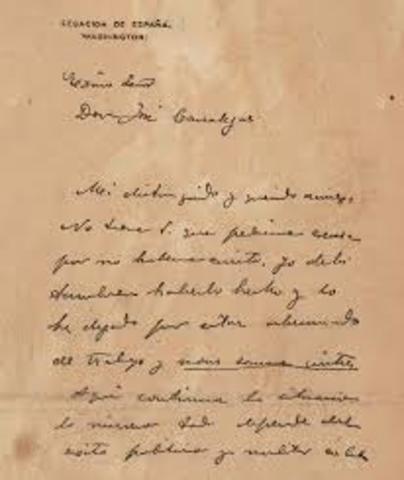 LEGACION DE ESPAÑA.
WASHINGTON.
Excmo Señor
Don José Canalejas
Mi distinguido y querido amigo:
No tiene V. que pedirme excusa
por no haberme escrito, yo debí
tambien haberlo hecho y lo
he dejado por estar abrumado
de trabajo y
Aquí continua la situacion
lo mismo. Todo depende del
exito politico y militar en Cuba